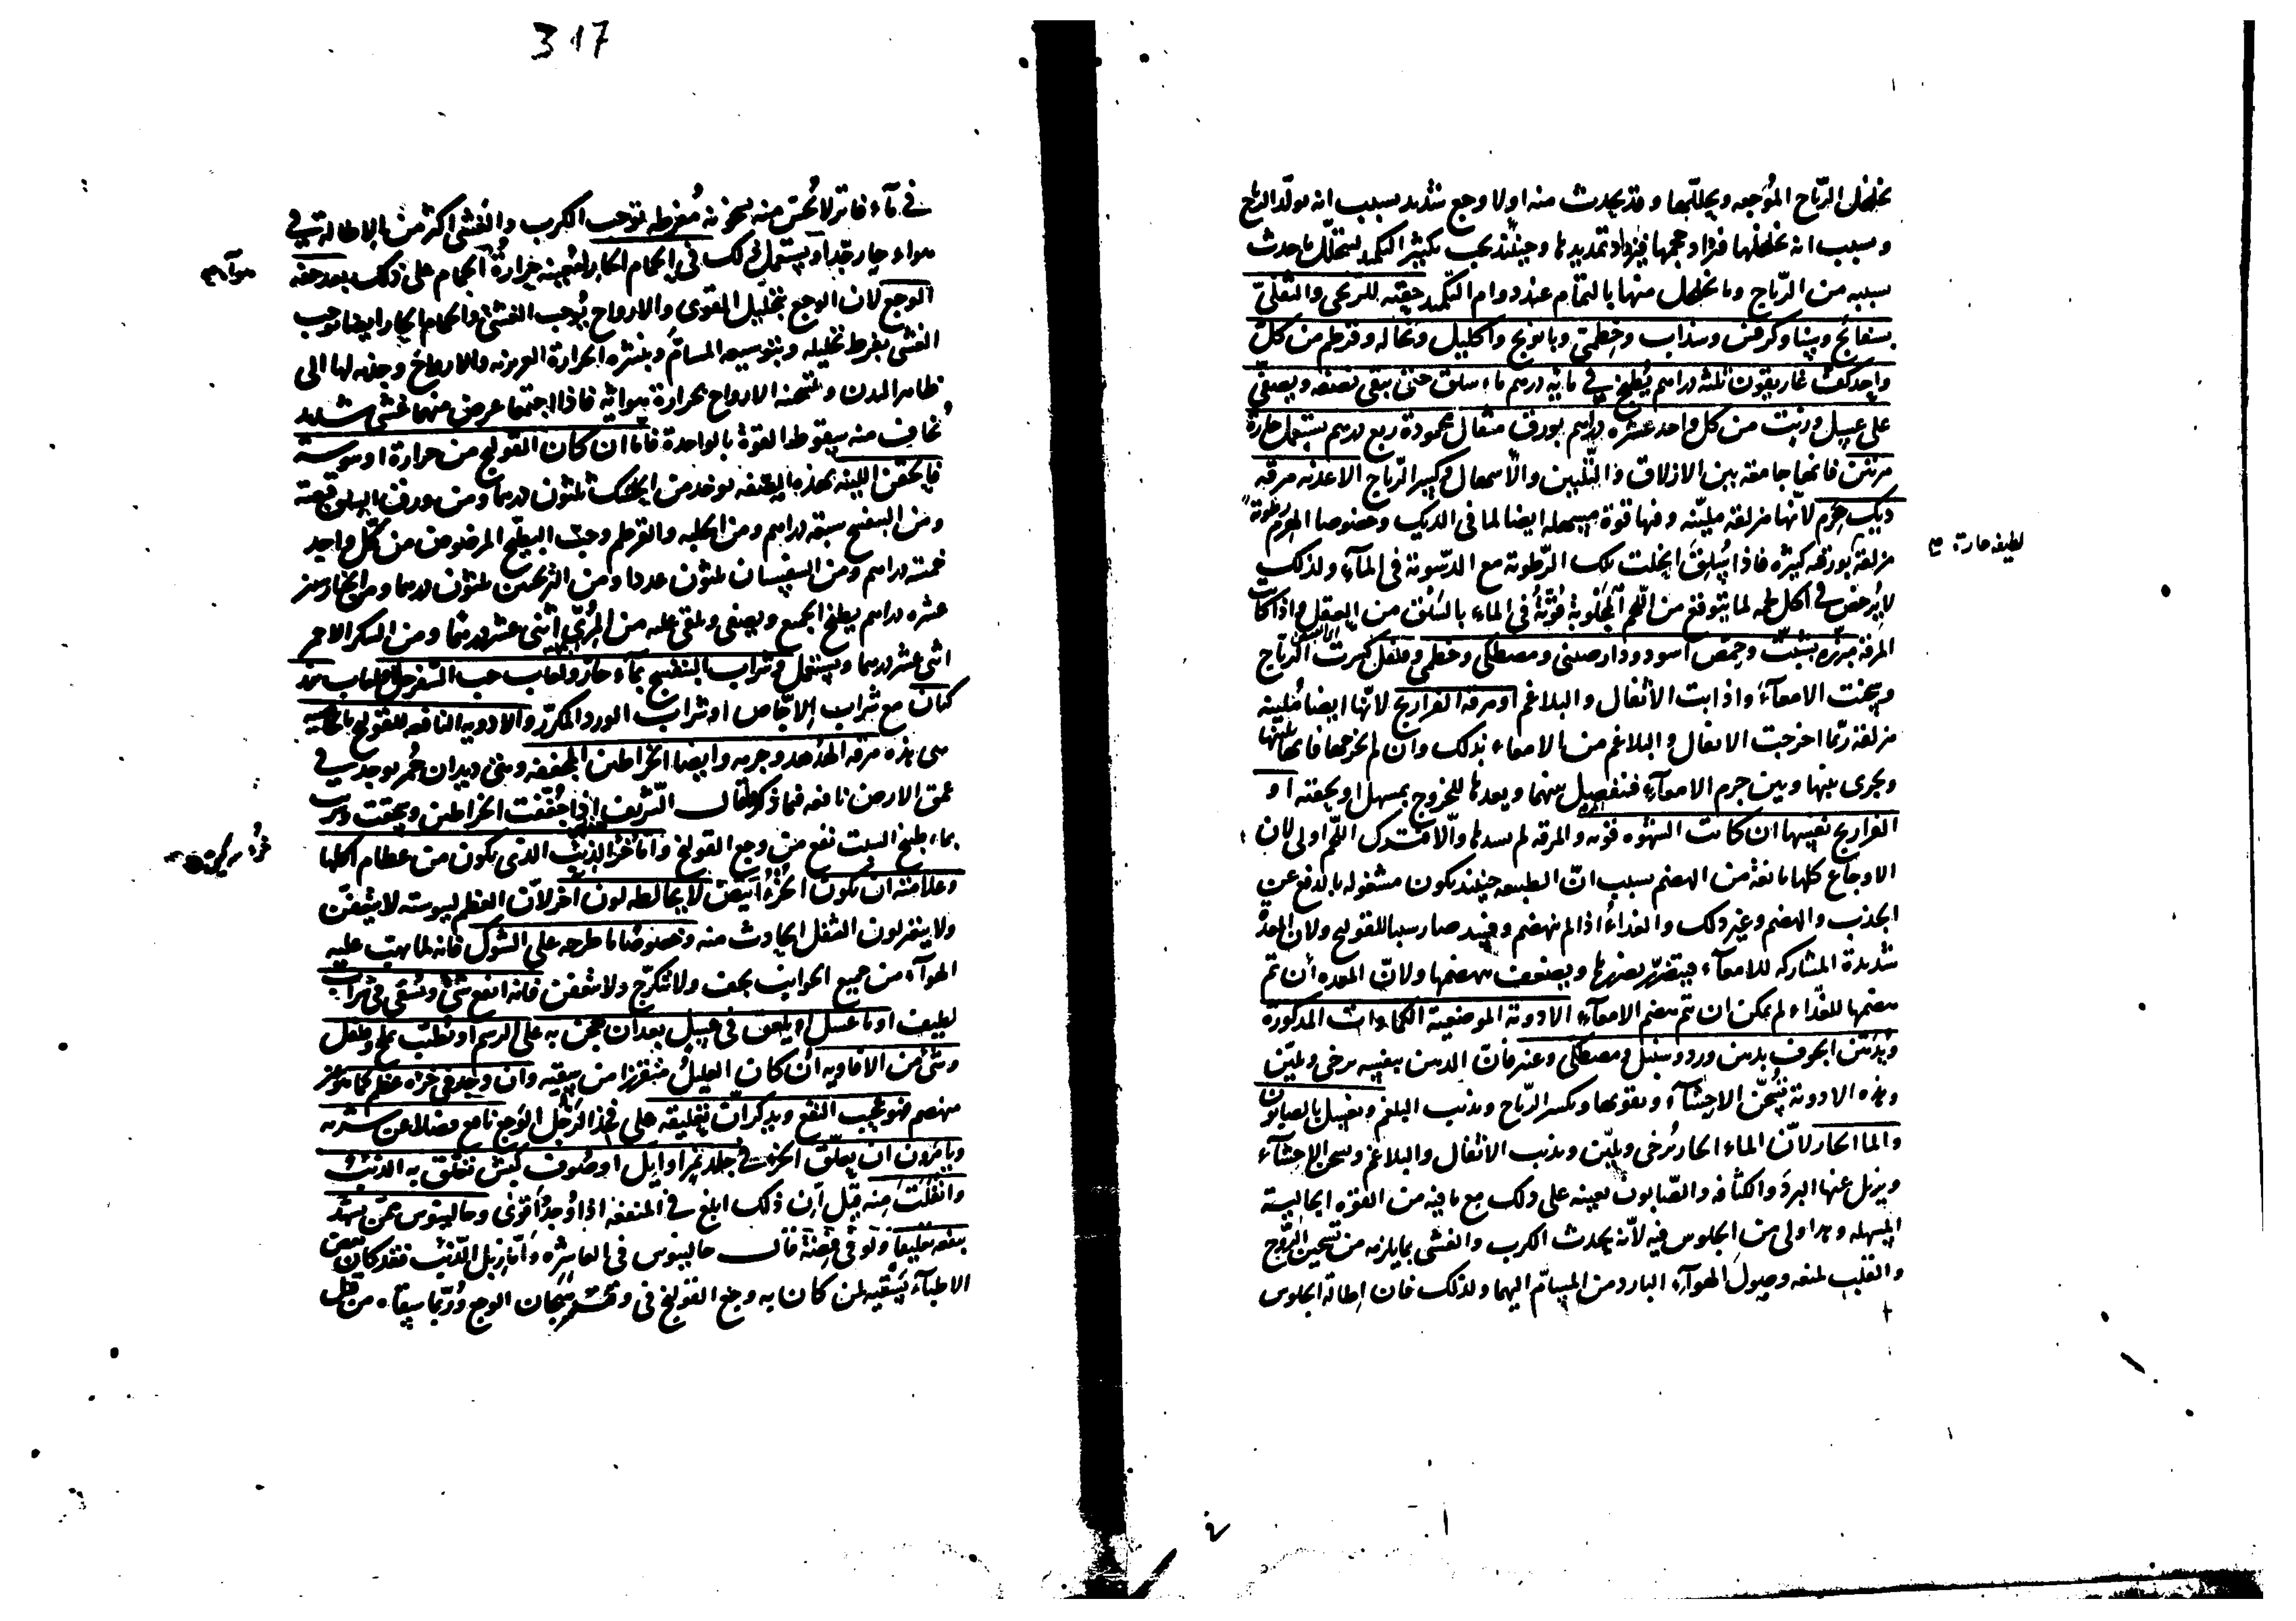 يخلخل الرّياح المُوجعه ويحلّلها وقد يحدث منه اولا وجع شديد بسبب انه يولّد الرياح
وبسبب انه يخلخلها فيزداد حجمها فيزداد تمديدها وحينئذ يجب تكثير التكميد ليتحلّل ما حدث
بسببه من الرّياح وما تخلخل منها بالتمام عند دوام التكميد حقنه للريحى والثفلىّ
بسفايج وسنا وكرفس وسذاب وخطمى وبابونج واكليل ونخاله وقرطم من كل
واحد كف غاريقون ثلثة دراهم يُطبخ فى مايه درهم ماء سلق حتى يبقى نصفه ويصفى
على عسل وزيت من كل واحد عشره دراهم بورق مثقال محمودة ربع درهم يستعمل حارة
مرّتين فانها جامعة بين الازلاق والتليين والاسهال وكسر الرّياح الاغذيه مرقه
ديك هرم لانّها مزلقه مليّنه وفيها قوة مسهله ايضا لما فى الديك وخصوصا الهرم رطوبة
لطيفه حارة
مزلقة بورقيه كثيره فاذا سُلِقَ انحلت تلك الرّطوبة مع الدّسومة فى المآء ولذلك
لا يُرخص فى اكل لحمه لما يتوقع من اللّحم الخلوبة قوّتهُ فى الماء بالسَلق من العقل واذا كانت
المرقه مبزّره بشبت وحِمّص اسود ودارصينى ومصطكى وخطمى وفلفل كسرت الرّياح
وسخنت الامعآءَ واذابت الأثفال والبلاغم او مرقة الفراريج لانّها ايضا مُليّنه
مزلقة ربّما اخرجت الاثفال والبلاغم من الامعاء بذلك وان لم تخرجها فانها تليّنها
وتجرى بينها وبين جرم الامعآءِ فتفصل بينهما ويعدها للخروج بمسهل او بحقنه او
الفراريج نفسها ان كانت الشهوه قويه والمرقه لم تسدها والّا فترك اللّحم اولى لان
الاوجاع كلها مانعة من الهضم بسبب انّ الطبيعه حينئذ تكون مشغوله بالدفع عن
الجذب والهضم وغير ذلك والغذاءُ اذا لم ينهضم وفسد صار سببا للقولنج ولان المعدة
شديدة المشاركه للامعآء فيتضرّر بضررها ويضعف هضمها ولانّ المعده ان تم
هضمها للغذاء لم يمكن ان يتم هضم الامعآءِ الادوية الموضعية الكمادات المذكورة
ويدهن الجوف بدهن ورد وسنبل ومصطكى وعنبر فانّ الدهن بنفسه يرخى ويليّن
وهذه الادوية تُسخّن الاحشآءَ وتقويها وتكسر الرّياح وتذيب البلغم ويغسل بالصابون
والما الحار لانّ الماء الحار يُرخى ويليّن ويذيب الاثفال والبلاغم ويسخن الاحشآءَ
ويزيل عنها البردَ والكثافه والصّابون يعينه على ذلك مع ما فيه من القوّه الجالية
المسهله وهو اولى من الجلوس فيه لانّه يحدث الكرب والغشى بما يلزمه من تسخين الرّوح
والقلب لمنعه وصولَ الهوآءِ البارد من المسامّ اليهما ولذلك فان إطالة الجلوس
317
فى مآء فاتر لا يُحسّ منه بسخونه مُفرطه توجب الكرب والغشى اكثر من الإطالة فى
هواء حار جدّا ويستعمل ذلك فى الحمام الحار لتُعينه حرارةُ الحمام على ذلك بعد خفه
هوآءه
الوجع لان الوجع بتحليل القوى والارواح يُوجب الغشىَ والحمام الحار ايضا توجب
الغشى بفرط تحليله وبتوسيعه المسامَّ وبنشره الحرارة الغريزيه والارواح وجذبه لها الى
ظاهر البدن وتسخينه الارواح بحرارة هوائه فاذا اجتمعا عرض منهما غشى شديد
يُخاف منه سقوط القوة بالواحدة فاما ان كان القولنج من حرارة او يبوسة
فالحقن الليّنه بهذه الصّفه يوخذ من الحسك ثلثون درهما ومن ورق السلق قبضه
ومن البنفسج سبعة دراهم ومن الحلبه والقرطم وحبّ البطّيخ المرضوض من كلّ واحد
خمسة دراهم ومن السفستان ثلثون عددا ومن الترنجبين ثلثون درهما ومن الخيار شنبر
عشره دراهم يطبخ الجميع ويصفى ويلقى عليه من المُرّى اثنى عشر درهما ومن السكر الاحمر
اثنى عشر درهما ويستعمل وشراب البنفسج بمآء حار ولعاب حب السّفرجل ولعاب بزر
كتان مع شراب الإجّاص او شراب الورد المكرّر والادويه النافعه للقولنج بالخاصيه
هى هذه مرقه الهُدهد وجرمه وايضا الخراطين المجففه وهى ديدان حُمر توجد فى
عمق الارض نافعه فيما ذكروا قال الشّريف اذا جُفّفت الخراطين وسحقت وشربت
بماء طبيخ الشبت نفع من وجع القولنج واما خرء الذيب الذى يكون من عظام اكلها
خُرء
وعلامته ان يكون الخُرءُ ابيض لا يخالطه لون اخر لانّ العظم ليبوسته لا يتعفّن
ولا يتغير لون الثفل الحادث منه وخصوصًا ما طرحه على الشوك فانه لما يهب عليه
الهوآء من جميع الجوانب يجف ولا يتكرّج ولا يتعفن فانه انفع شىء ويُسقى فى شراب
لطيف او ما عسل او يلعق فى عسل بعد ان يعجن به على الرسم او يُطيّب بملح وفلفل
وشىء من الافاويه ان كان العليلُ متقززا من سقيه وان وجد فى خرئه عظم كما هو غير
منهضم فهو عجيب النفع ويذكر انّ تعليقه على فخذ الرّجل الوَجِع نافع فضلا عن شربه
ويامرون ان يعلّق الخرء فى جلد نمر او ايل او صُوف كبش تعلّق به الذئبُ
وانفلَتَ منه قيل ان ذلك ابلغ فى المنفعه اذا وُجد اقوى وجالينوس ممّن يشهد
بنفعه تعليقًا ولو فى فِضّة قال جالينوس فى العاشِرة وامّا زبل الذئب فقد كان بعض
الاطبآء يَسقيه لمن كان به وجع القولنج فى وقت هيجان الوجع ورُبّما سقاه من قبل